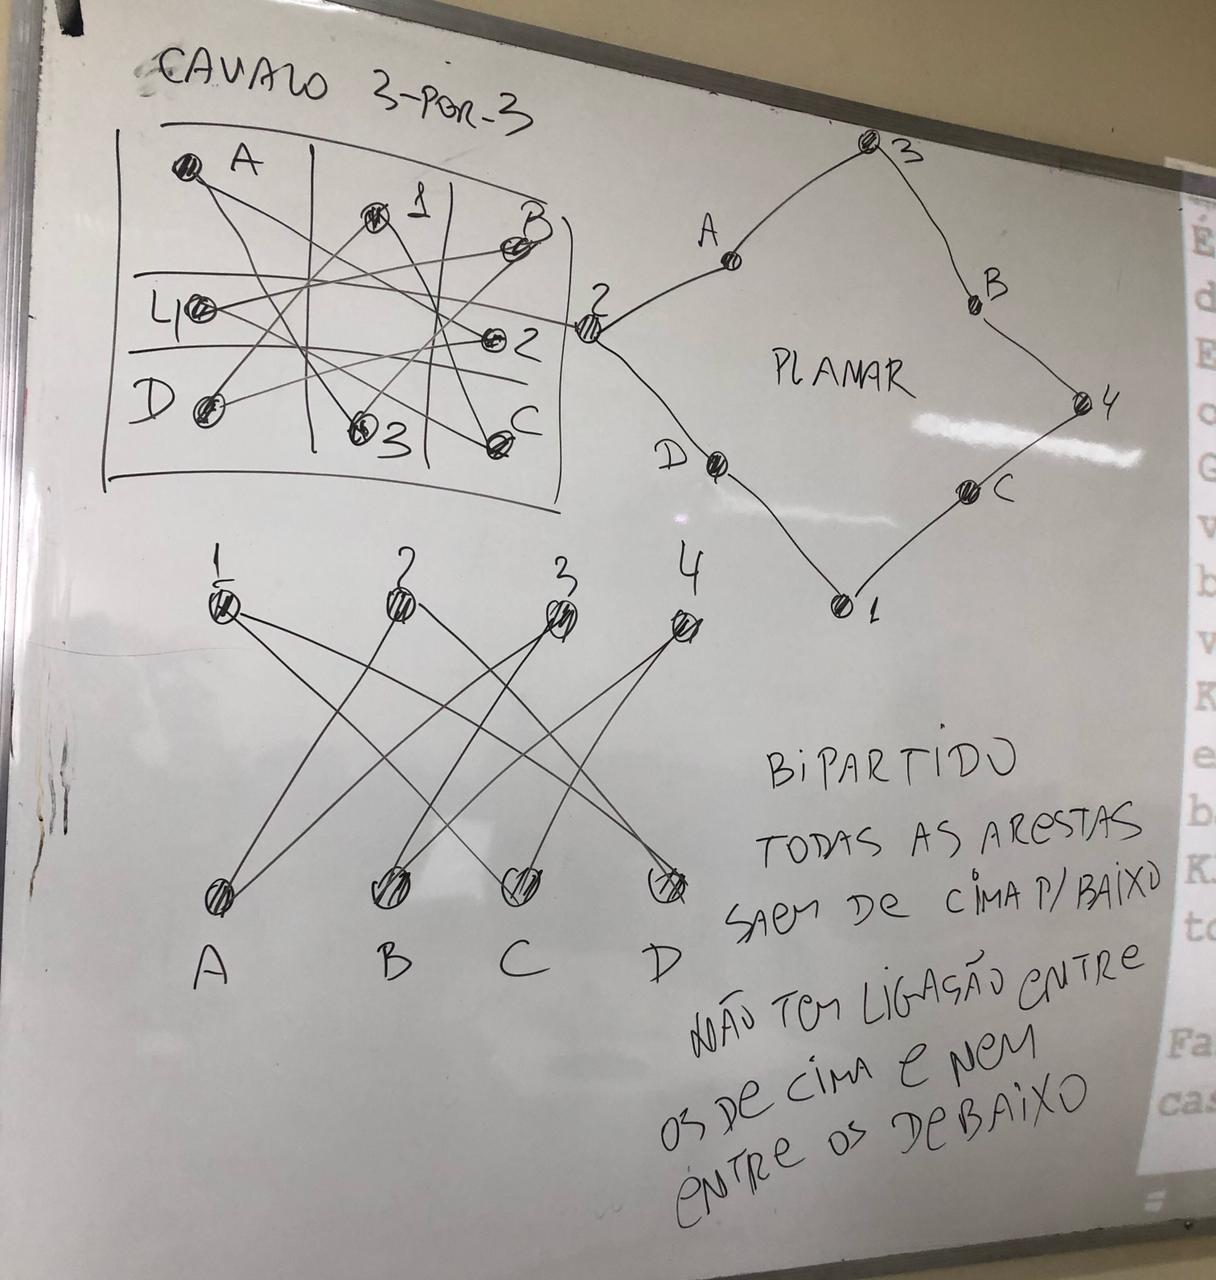 CAVALO 3-POR-3
A
1
B
4
2
D
3
C
3
A
B
2
PLANAR
4
D
C
1
1
2
3
4
A
B
C
D
BIPARTIDO
TODAS AS ARESTAS
SAEM DE CIMA P/ BAIXO
NÃO TEM LIGASÃO ENTRE
OS DE CIMA E NEM
ENTRE OS DEBAIXO
É
d
E
o
G
v
b
v
K
e
b
K
to
Fa
cas